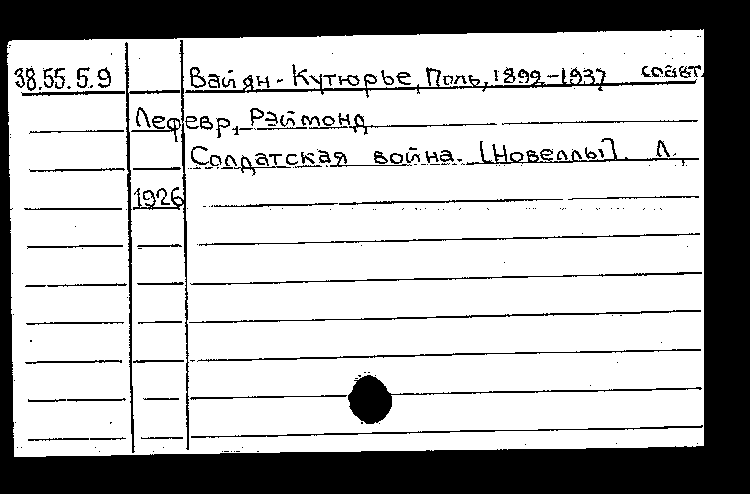 38.55.5.9 Вайян-Кутюрье, Поль, 1892-1937 соавт.
Лефевр, Рэймонд
Солдатская война. [Новеллы]. Л.,
1926